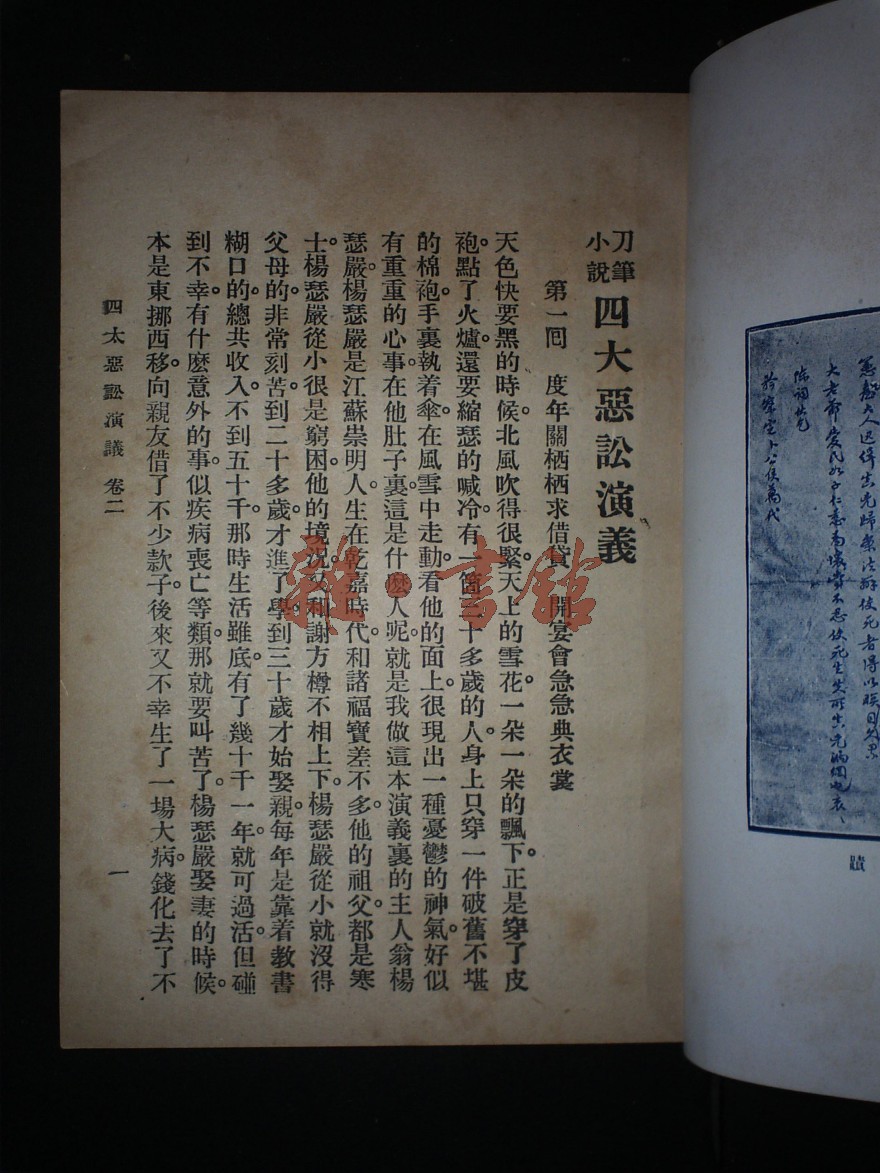 蹟
刀筆小說 四大惡訟演義
第一回 度年關栖栖求借貸 開宴會急急典衣裳
天色快要黑的時候。北風吹得很緊。天上的雪花一朵一朵的飄下。正是穿了皮
袍。點了火爐。還要縮瑟的喊冷。有一箇三十多歲的人。身上只穿一件破舊不堪
的棉袍。手裏執着傘。在風雪中走動。看他的面上。很現出一種憂鬱的神氣。好似
有重重的心事。在他肚子裏。這是什麼人呢。就是我做這本演義裏的主人翁楊
瑟嚴。楊瑟嚴是江蘇崇明人。生在乾嘉時代。和諸福寶差不多。他的祖父。都是寒
士。楊瑟嚴從小很是窮困。他的境況。又和謝方樽不相上下。楊瑟嚴從小就沒得
父母的。非常刻苦。到二十多歲。才進了學。到三十歲才始娶親。每年是靠着教書
糊口的。總共收入。不到五十千。那時生活雖底。有了幾十千一年。就可過活。但碰
到不幸。有什麼意外的事。似疾病喪亡等類。那就要叫苦了。楊瑟嚴娶妻的時候。
本是東挪西移。向親友借了不少款子。後來又不幸生了一場大病。錢化去了不
四大惡訟演議 卷二
一
雜·書館